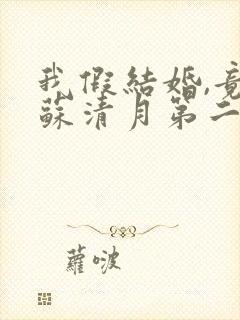 我假結婚,竟
蘇清月第二
蘿啵